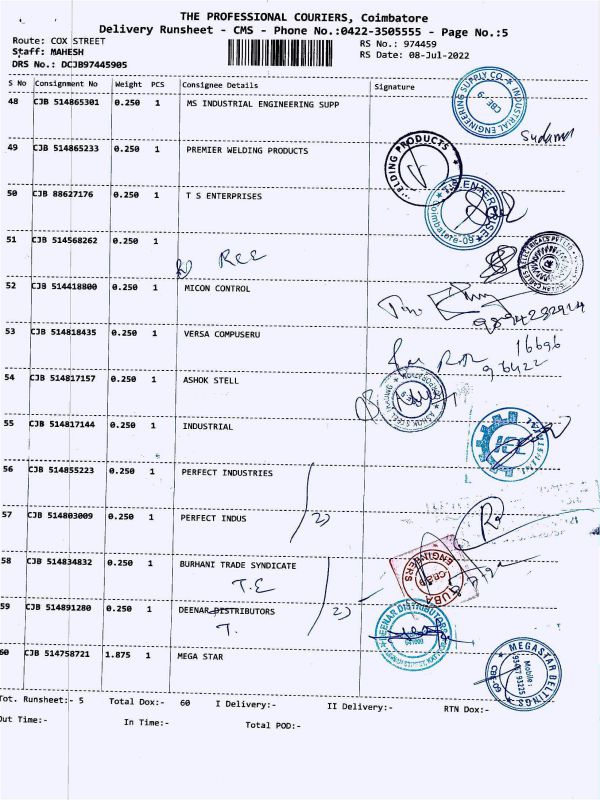 THE PROFESSIONAL COURIERS, Coimbatore
Delivery Runsheet - CMS - Phone No.:0422-3505555 - Page No.:5
Route: COX STREET
RS No.: 974459
Staff: MAHESH
RS Date: 08-Jul-2022
DRS No.: DCJB97445905
S No Consignment No Weight PCS Consignee Details Signature
48 CJB 514865301 0.250 1 MS INDUSTRIAL ENGINEERING SUPP
INDUSTRIAL ENGINEERING SUPPLY CO
CBE-9
49 CJB 514865233 0.250 1 PREMIER WELDING PRODUCTS
ELDING PRODUCTS
50 CJB 88627176 0.250 1 T S ENTERPRISES
ENTERPRISE
Coimbatore-09
51 CJB 514568262 0.250 1
REE
CABLES & ELECTRICALS PVT LTD
52 CJB 514418800 0.250 1 MICON CONTROL
9894232914
53 CJB 514818435 0.250 1 VERSA COMPUSERU
16696
96422
54 CJB 514817157 0.250 1 ASHOK STELL
55 CJB 514817144 0.250 1 INDUSTRIAL
56 CJB 514855223 0.250 1 PERFECT INDUSTRIES
57 CJB 514803009 0.250 1 PERFECT INDUS
2)
58 CJB 514834832 0.250 1 BURHANI TRADE SYNDICATE
T.E
ENGINEERS
CBE-9
59 CJB 514891280 0.250 1 DEENAR DISTRIBUTORS
T.
2)
DEENAR DISTRIBUTORS
60 CJB 514758721 1.875 1 MEGA STAR
MEGASTAR BELTINGS
Mobile :
93677 93225
CBE-09
Tot. Runsheet:- 5 Total Dox:- 60 I Delivery:- II Delivery:- RTN Dox:-
Out Time:- In Time:- Total POD:-